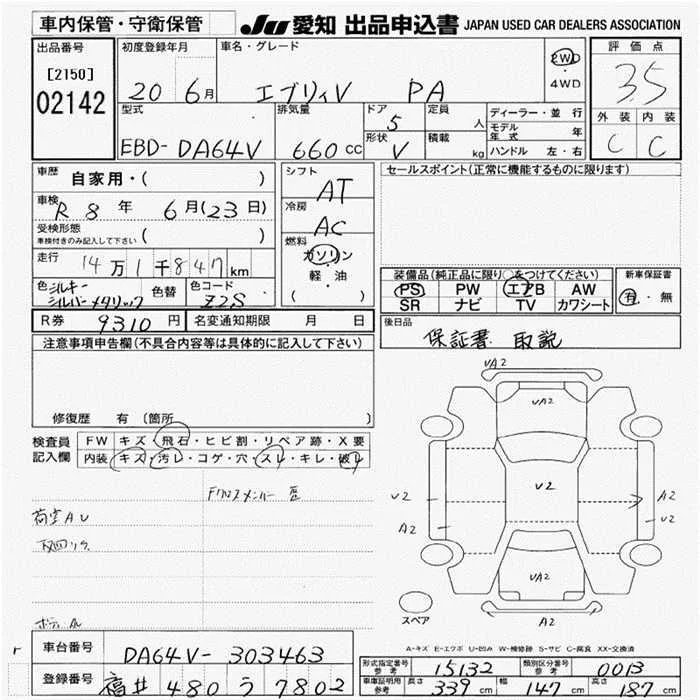 車内保管・守衛保管
JU 愛知 出品申込書 JAPAN USED CAR DEALERS ASSOCIATION
出品番号
[2150]
02142
初度登録年月
20 6月
車名・グレード
エブリィV PA
2WD
・4WD
評価点
3.5
外装 内装
C C
型式
EBD-DA64V
排気量
660 CC
ドア
5
形状
V
定員
人
積載
kg
ディーラー・並行
モデル年式 年
ハンドル 左・右
車歴
自家用・( )
車検
R 8 年 6月(23日)
受検形態
車検付きのみ記入して下さい ( )
走行
14万1千847km
色 シルキーシルバーメタリック
色替
色コード
Z2S
R券 9310 円
名変通知期限 月 日
シフト
AT
冷房
AC
燃料
ガソリン
・
軽・油
( )
セールスポイント(正常に機能するものに限ります)
装備品(純正品に限り○をつけてください)
PS PW エアB AW
SR ナビ TV カワシート
新車保証書
有・無
後日品
保証書 取説
注意事項申告欄(不具合内容等は具体的に記入して下さい)
修復歴 有 (箇所 )
検査員
記入欄
FW キズ・飛石・ヒビ割・リペア跡・X要
内装 キズ・汚レ・コゲ・穴・スレ・キレ・破レ
Fクロスメンバー
荷室AU
下回りサ
ボディ
VA2
VA2
V2
V2
A2
A2
V2
VA2
A2
スペア
A-キズ E-エクボ U-凹み W-補修跡 S-サビ C-腐食 XX-交換済
車台番号
DA64V-303463
登録番号
福井 480 う 7802
形式指定番号
参考
15132
類別区分番号
参考
0013
車庫証明用
参考
長さ 339 cm 幅 147 cm 高さ 187 cm